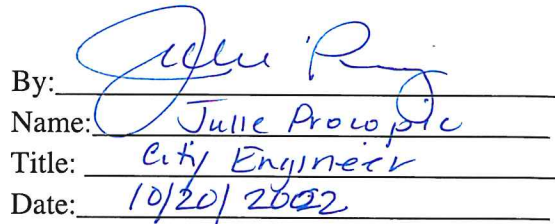 By:
Name: Julie Procopio
Title: City Engineer
Date: 10/20/2022